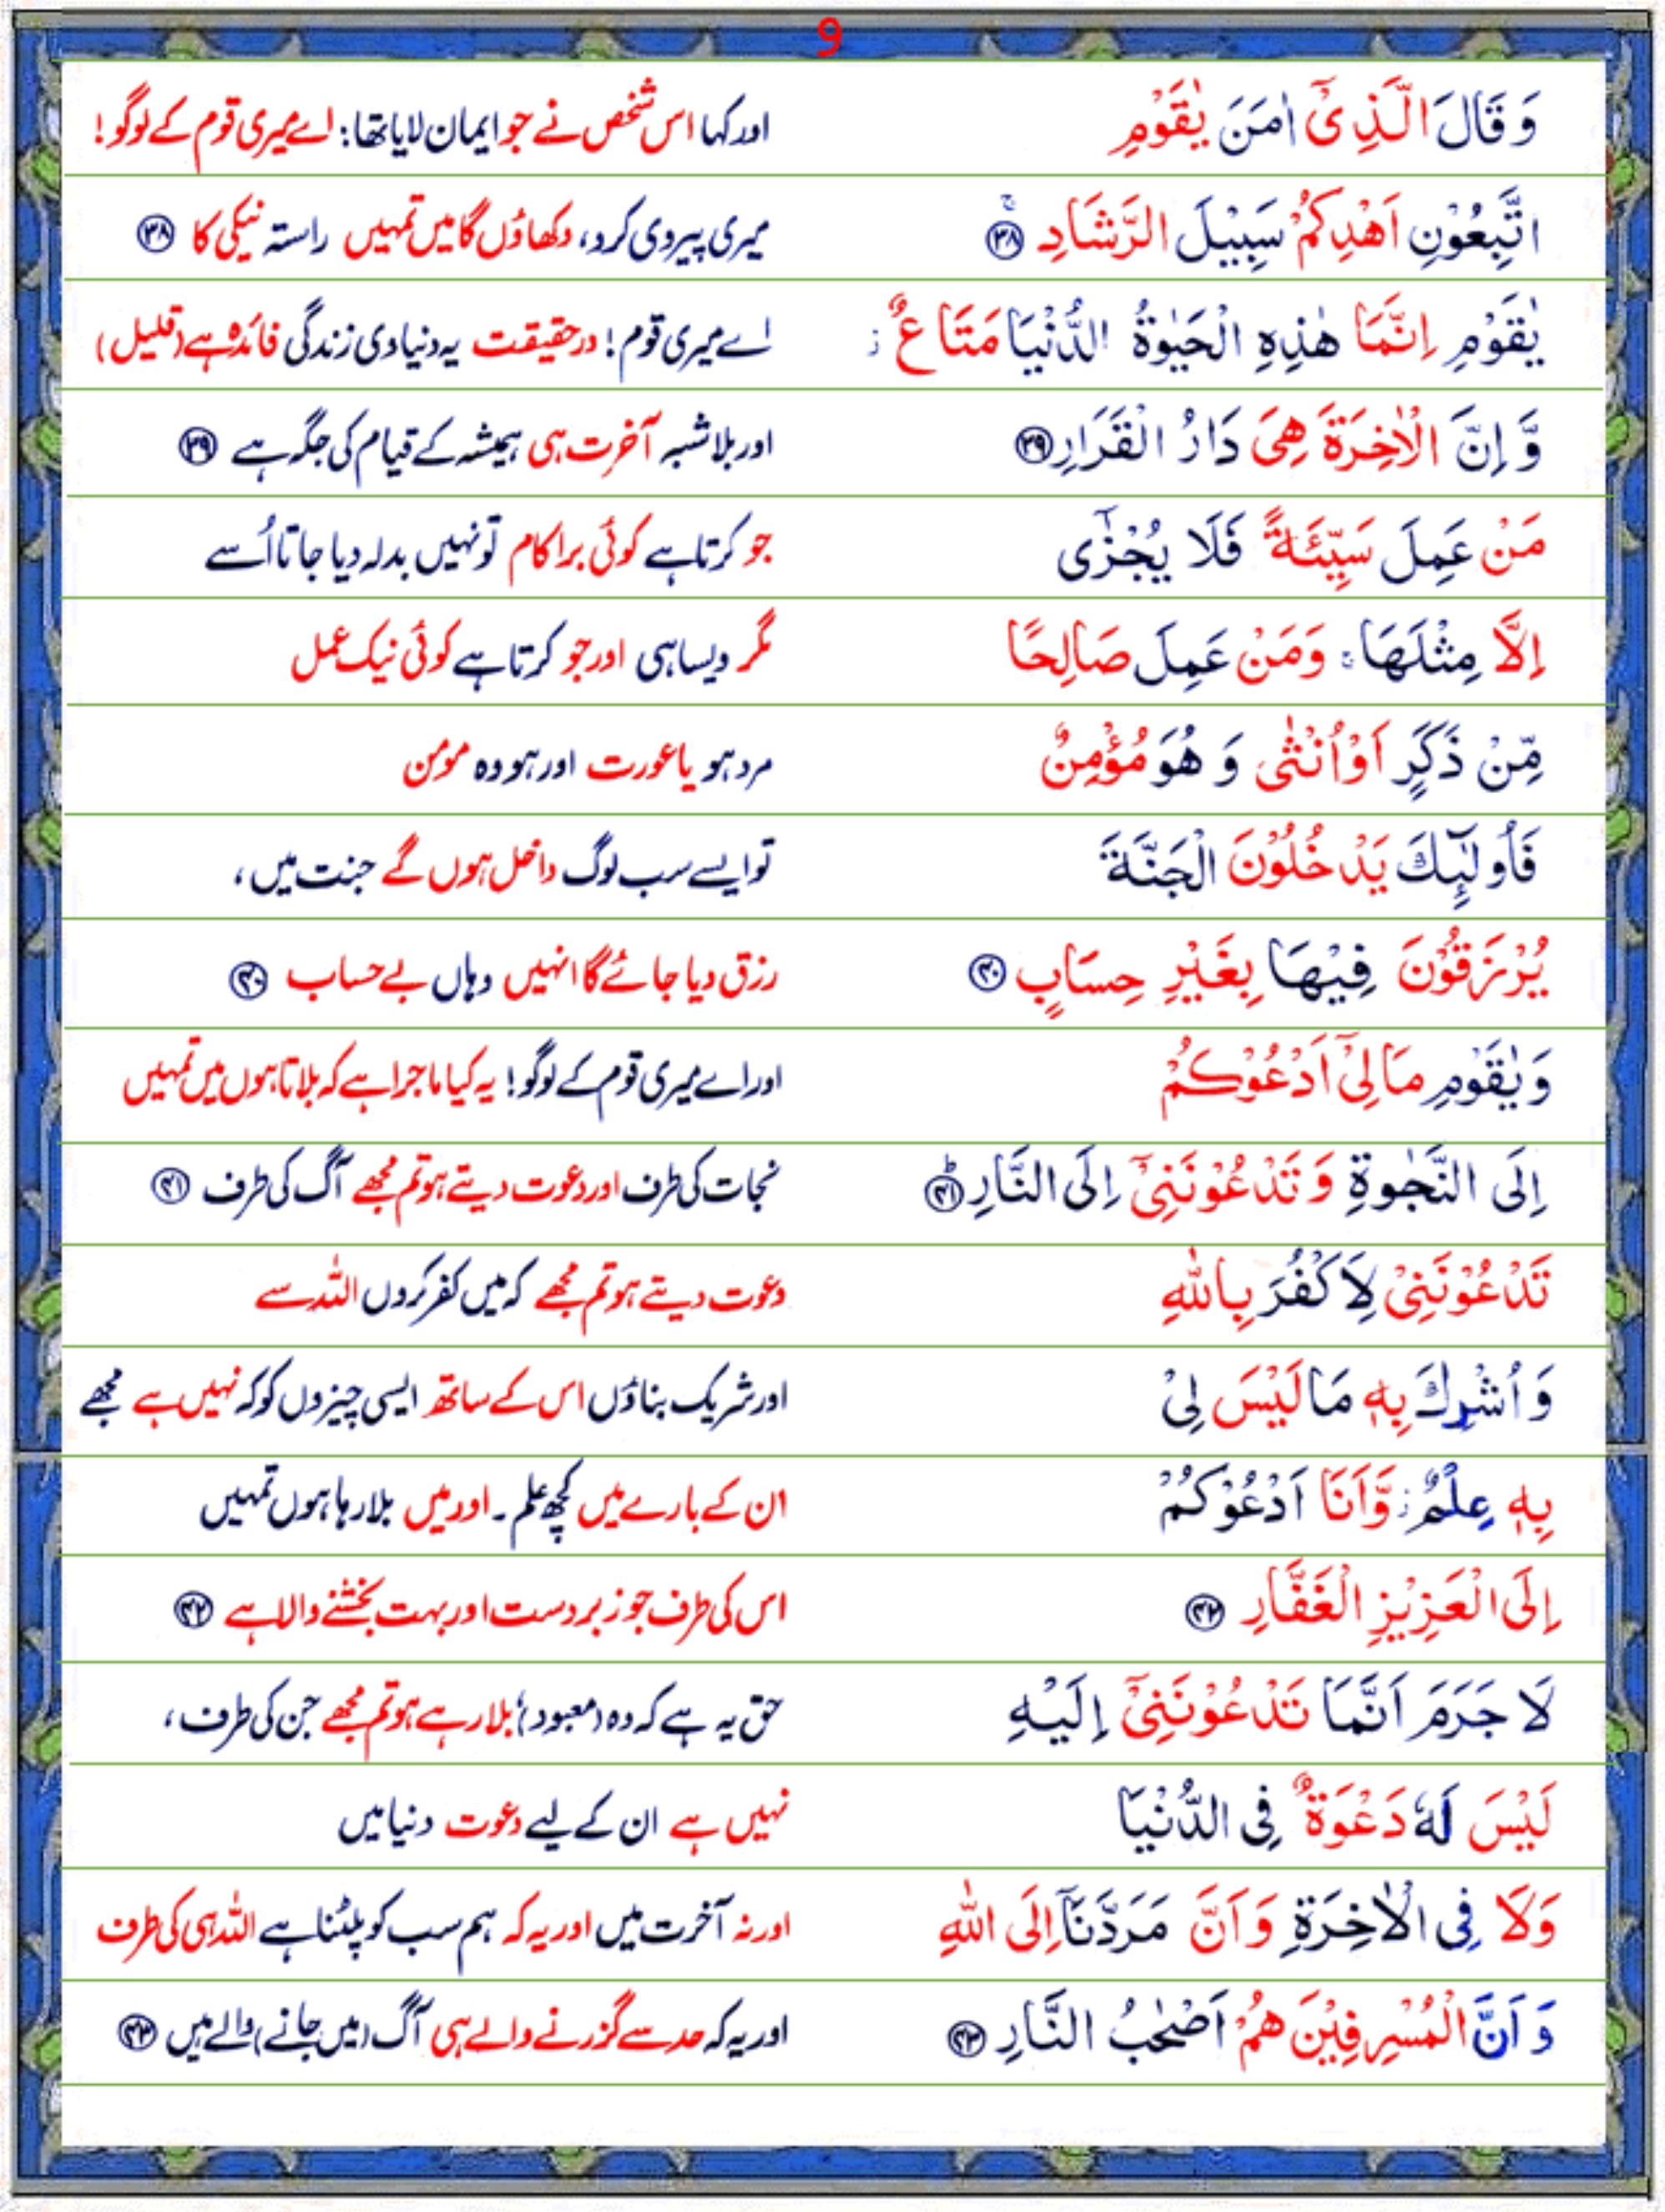 9
وَقَالَ الَّذِىْۤ اٰمَنَ يٰقَوْمِ اور کہا اس شخص نے جو ایمان لایا تھا: اے میری قوم کے لوگو!
اتَّبِعُوْنِ اَهْدِكُمْ سَبِيْلَ الرَّشَادِ ۚ‏ ﴿۳۸﴾ میری پیروی کرو، دکھاؤں گا میں تمہیں راستہ نیکی کا ﴿۳۸﴾
يٰقَوْمِ اِنَّمَا هٰذِهِ الْحَيٰوةُ الدُّنْيَا مَتَاعٌ ز اے میری قوم! درحقیقت یہ دنیاوی زندگی فائدہ ہے (قلیل)
وَّاِنَّ الْاٰخِرَةَ هِىَ دَارُ الْقَرَارِ ﴿۳۹﴾ اور بلاشبہ آخرت ہی ہمیشہ کے قیام کی جگہ ہے ﴿۳۹﴾
مَنْ عَمِلَ سَيِّئَةً فَلَا يُجْزٰٓى جو کرتا ہے کوئی برا کام تو نہیں بدلہ دیا جاتا اُسے
اِلَّا مِثْلَهَا ۚ وَمَنْ عَمِلَ صَالِحًا مگر ویسا ہی اور جو کرتا ہے کوئی نیک عمل
مِّنْ ذَكَرٍ اَوْ اُنْثٰى وَهُوَ مُؤْمِنٌ مرد ہو یا عورت اور ہو وہ مومن
فَاُولٰٓئِكَ يَدْخُلُوْنَ الْجَنَّةَ تو ایسے سب لوگ داخل ہوں گے جنت میں،
يُرْزَقُوْنَ فِيْهَا بِغَيْرِ حِسَابٍ ﴿۴۰﴾ رزق دیا جائے گا انہیں وہاں بے حساب ﴿۴۰﴾
وَيٰقَوْمِ مَا لِىْۤ اَدْعُوْكُمْ اور اے میری قوم کے لوگو! یہ کیا ماجرا ہے کہ بلاتا ہوں میں تمہیں
اِلَى النَّجٰوةِ وَتَدْعُوْنَنِىْۤ اِلَى النَّارِ ؕ ﴿۴۱﴾ نجات کی طرف اور دعوت دیتے ہو تم مجھے آگ کی طرف ﴿۴۱﴾
تَدْعُوْنَنِىْ لِاَكْفُرَ بِاللّٰهِ دعوت دیتے ہو تم مجھے کہ میں کفر کروں اللہ سے
وَاُشْرِكَ بِهٖ مَا لَيْسَ لِىْ اور شریک بناؤں اس کے ساتھ ایسی چیزوں کو کہ نہیں ہے مجھے
بِهٖ عِلْمٌ ز وَّاَنَا اَدْعُوْكُمْ ان کے بارے میں کچھ علم۔ اور میں بلا رہا ہوں تمہیں
اِلَى الْعَزِيْزِ الْغَفَّارِ ﴿۴۲﴾ اس کی طرف جو زبردست اور بہت بخشنے والا ہے ﴿۴۲﴾
لَا جَرَمَ اَنَّمَا تَدْعُوْنَنِىْۤ اِلَيْهِ حق یہ ہے کہ وہ (معبود) بلا رہے ہو تم مجھے جن کی طرف،
لَيْسَ لَهٗ دَعْوَةٌ فِى الدُّنْيَا نہیں ہے ان کے لیے دعوت دنیا میں
وَلَا فِى الْاٰخِرَةِ وَاَنَّ مَرَدَّنَاۤ اِلَى اللّٰهِ اور نہ آخرت میں اور یہ کہ ہم سب کو پلٹنا ہے اللہ ہی کی طرف
وَاَنَّ الْمُسْرِفِيْنَ هُمْ اَصْحٰبُ النَّارِ ﴿۴۳﴾ اور یہ کہ حد سے گزرنے والے ہی آگ (میں جانے) والے ہیں ﴿۴۳﴾